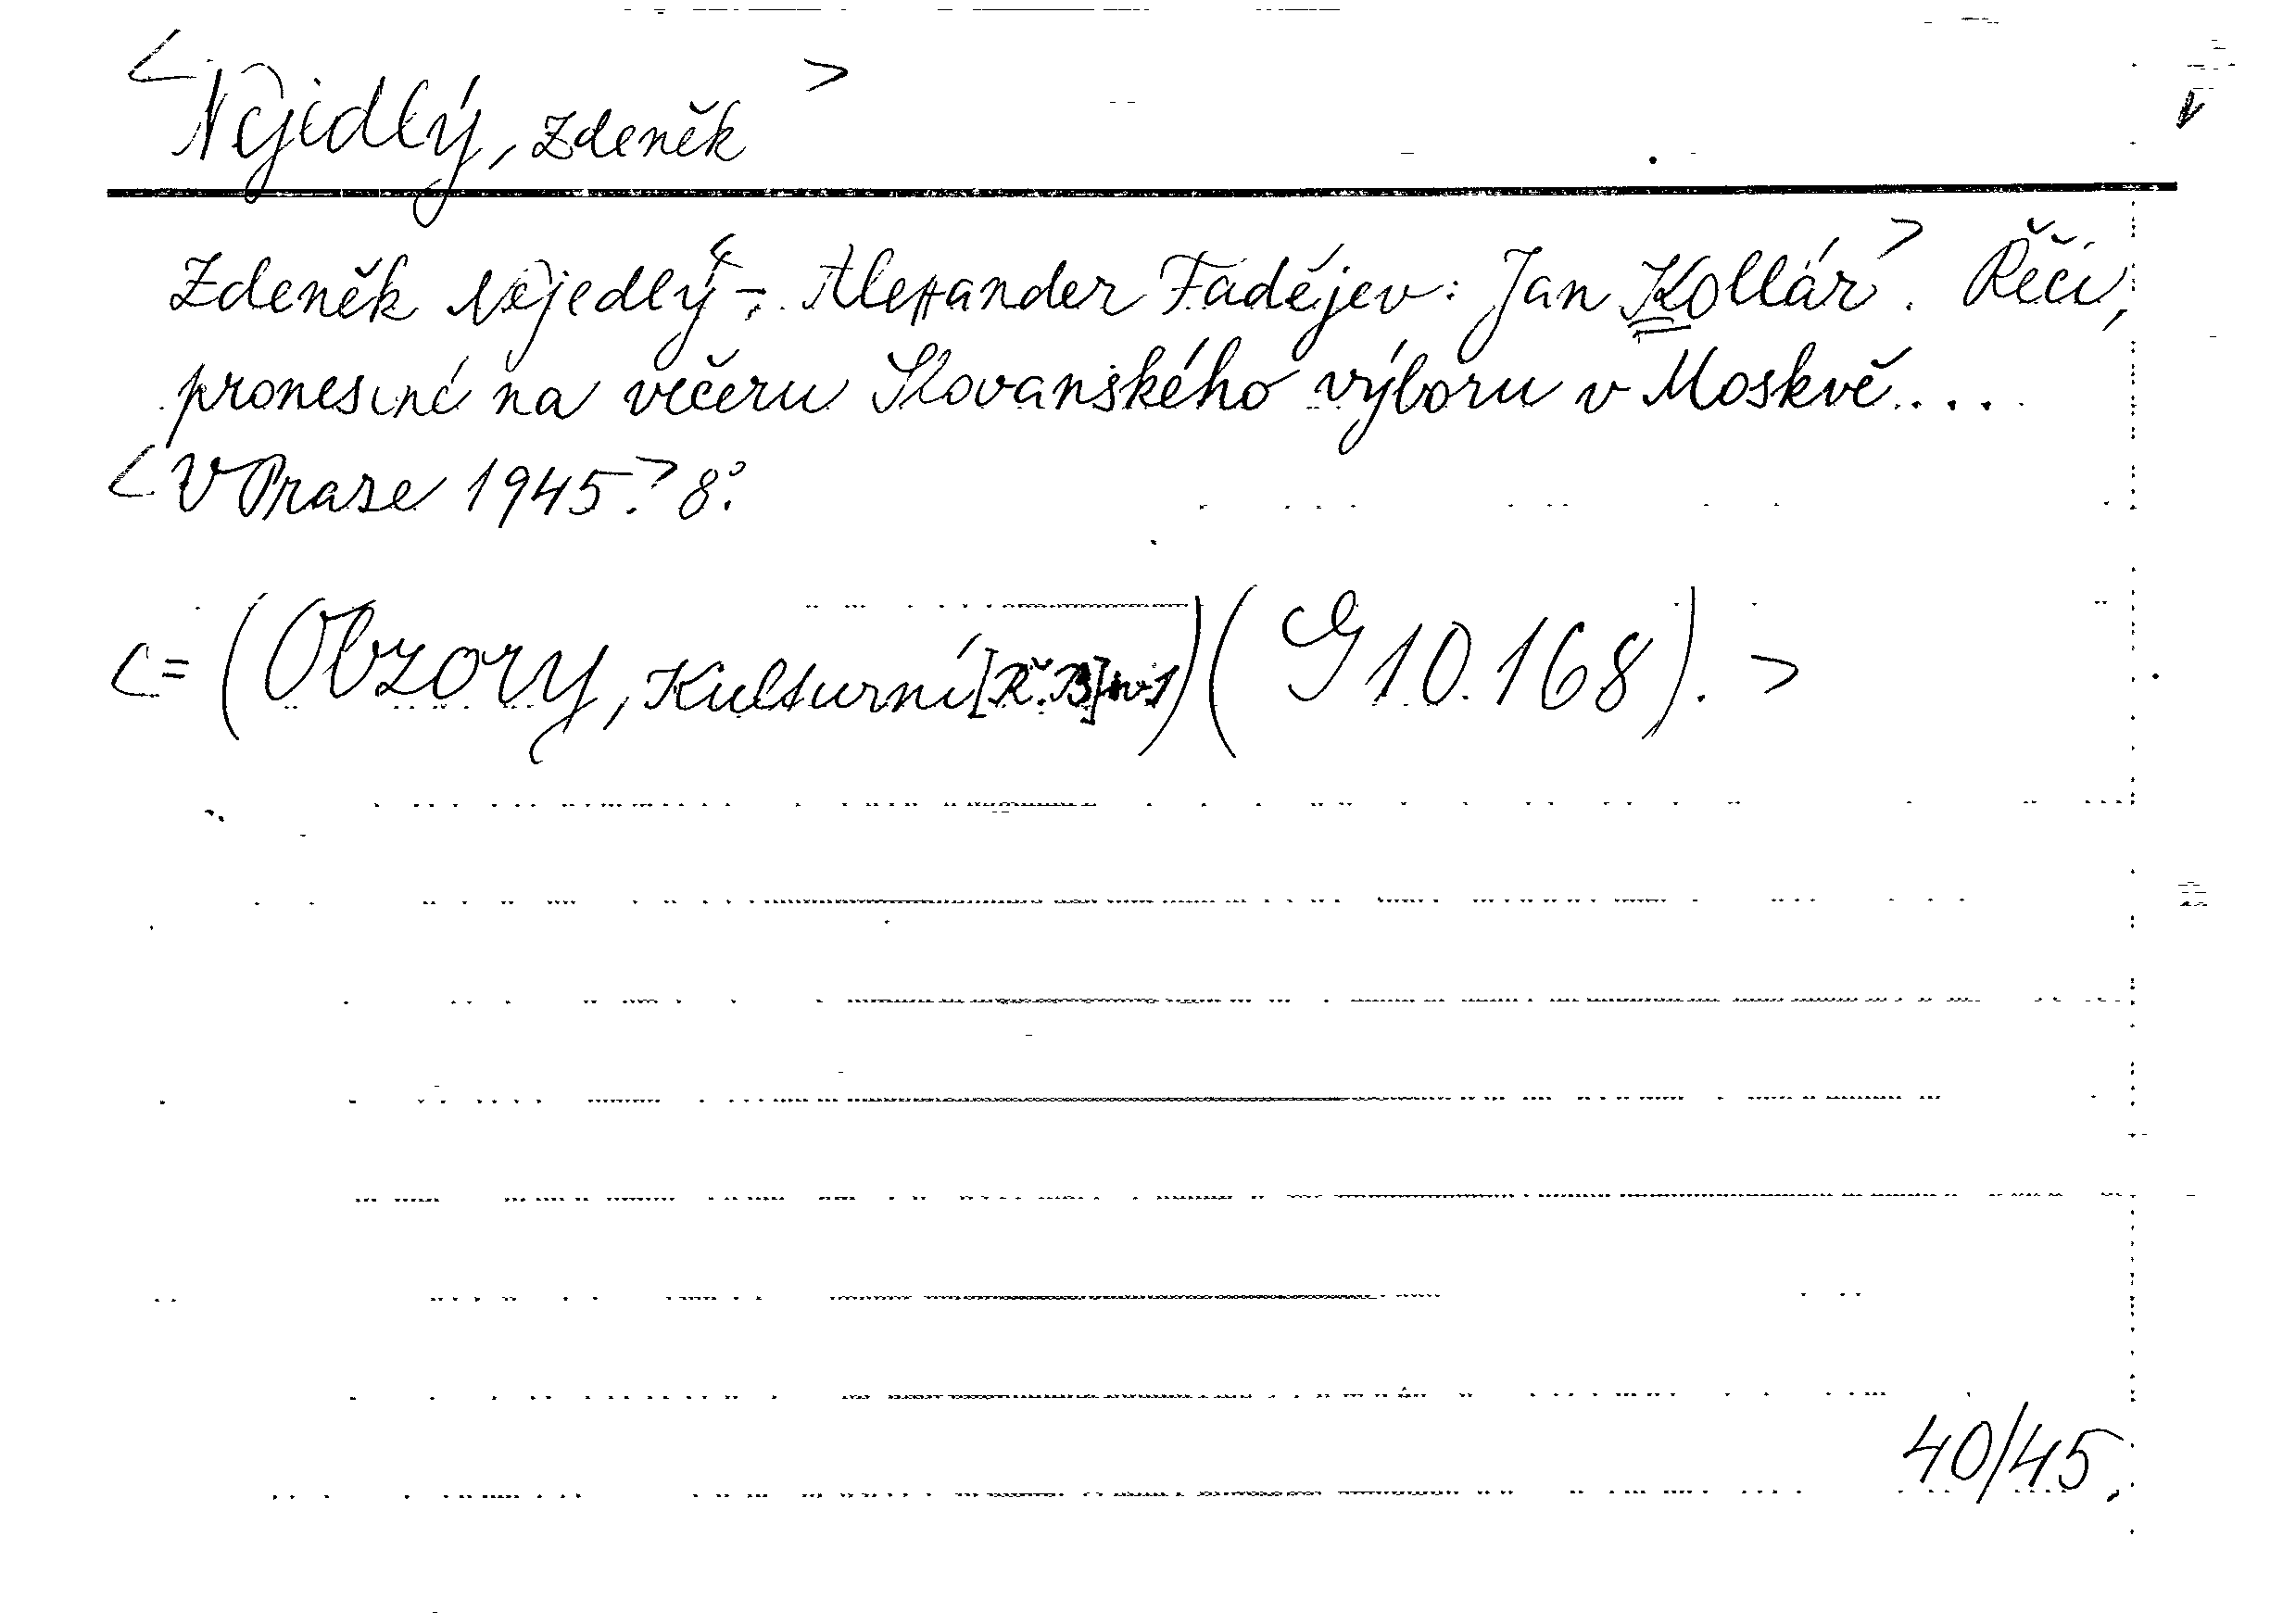 <Nejedlý, Zdeněk>
Zdeněk Nejedlý - <Alexander Fadějev: Jan Kollár>. Řeči,
pronesené na večeru Slovanského výboru v Moskvě....
<V Praze 1945.> 8°.
<= (Obzory, Kulturní [Ř. B] sv. 1) (G 10.168). >
40/45.